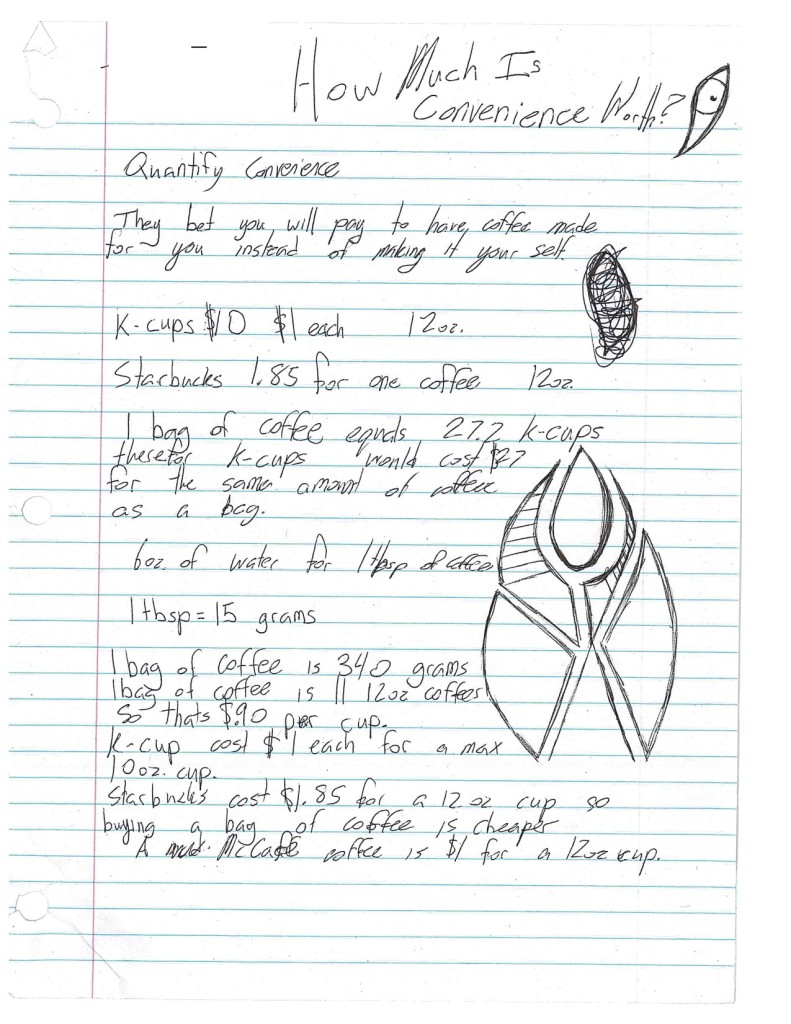 How Much Is
Convenience Worth?
Quantify Convenience
They bet you will pay to have coffee made
for you instead of making it your self.
K-cups $10 $1 each 12oz.
Starbucks 1.85 for one coffee 12oz.
1 bag of coffee equals 27.2 k-cups
therefor k-cups would cost $27
for the same amount of coffee
as a bag.
6oz. of water for 1 tbsp of coffee
1 tbsp = 15 grams
1 bag of coffee is 340 grams
1 bag of coffee is 11 12oz coffees
so thats $.90 per cup.
K-cup cost $1 each for a max
10oz. cup.
Starbucks cost $1.85 for a 12 oz cup so
buying a bag of coffee is cheaper
A McCafe coffee is $1 for a 12oz cup.